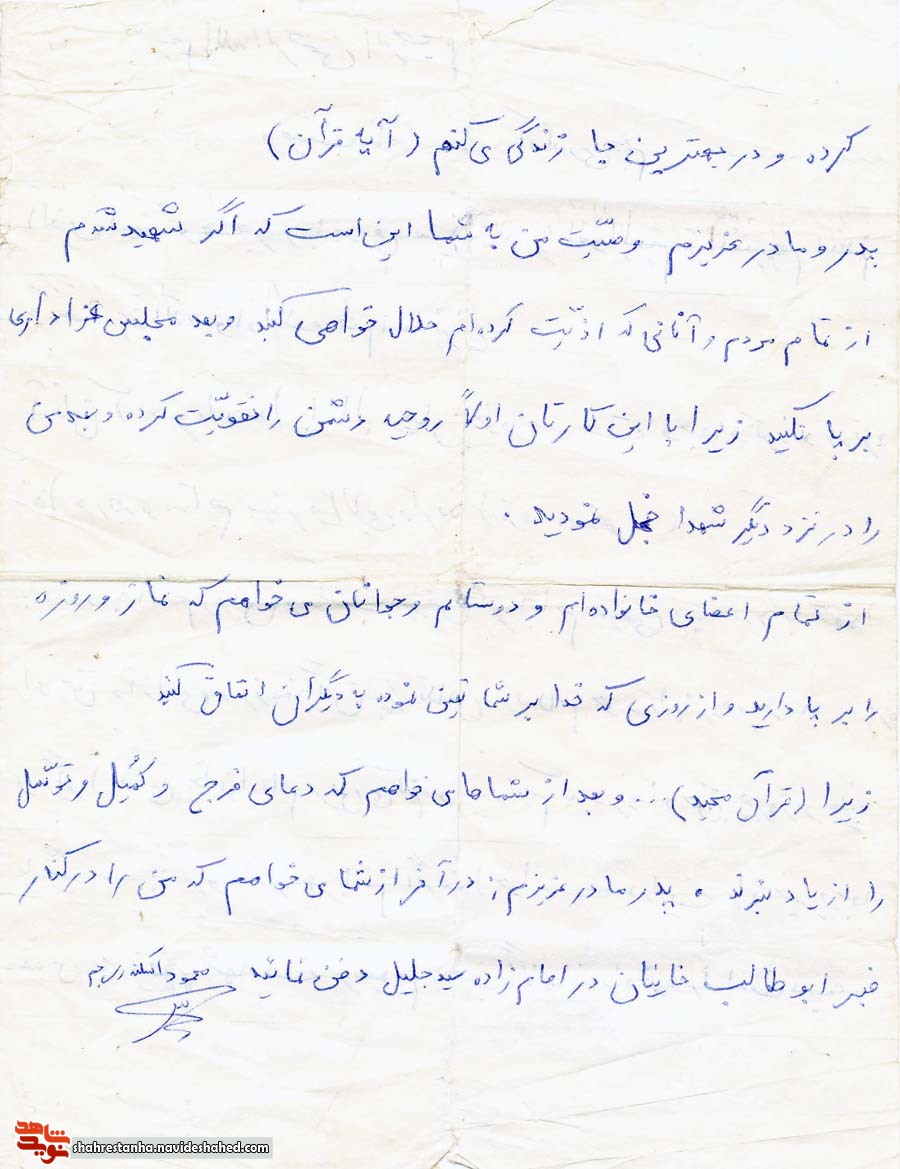 کرده و در بهترین جا زندگی می کنم ( آیه قرآن )
پدر و مادر عزیزم وصیّت من به شما این است که اگر شهید شدم
از تمام مردم و آنانی که اذیّت کرده ام حلال خواهی کنید و بعد مجلس عزاداری
بر پا نکنید زیرا با این کارتان اولاً روحیه دشمن را تقویّت کرده و بعد من
را در نزد دیگر شهدا خجل نمودید .
از تمام اعضای خانواده ام و دوستانم و جوانان می خواهم که نماز و روزه
را بر پا دارید و از روزی که خدا بر شما تعین نموده به دیگران انفاق کنید
زیرا (قرآن مجید) ... و بعد از شماها می خواهم که دعای فرج و کمیل و توسّل
را از یاد نبرند . پدر مادر عزیزم ; در آخر از شما می خواهم که من را در کنار
قبر ابوطالب خانیان در امام زاده سید جلیل دفن نمائید محمود
نوید شاهد
shahrestanha.navideshahed.com